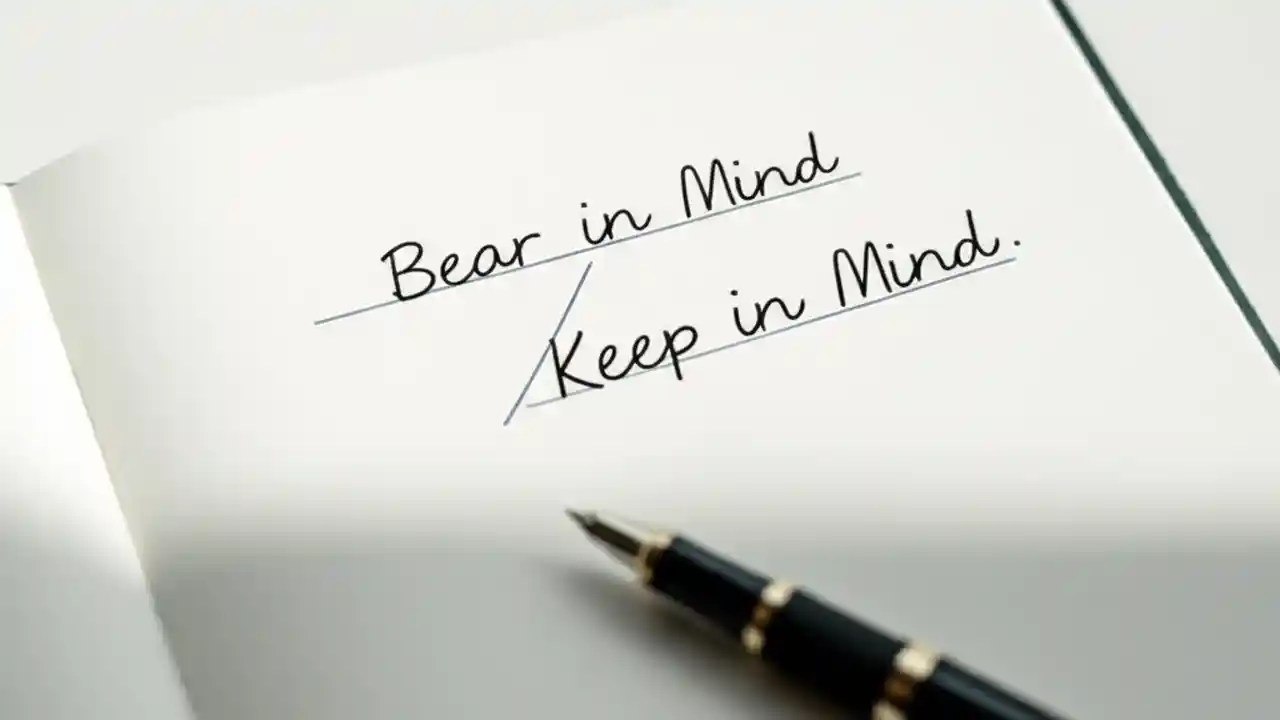 Bear in Mind
Keep in Mind.